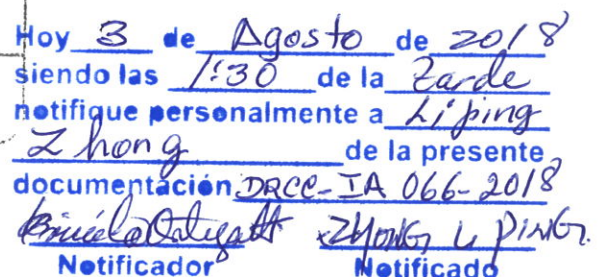 Hoy 3 de Agosto de 2018
siendo las 1:30 de la Tarde
notifique personalmente a Liping
Zhong de la presente
documentación DRCC-IA 066-2018
ZHONG LI PING
Notificador Notificado